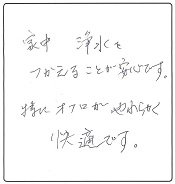 家中 浄水を
つかえることが安心です。
特に オフロが やわらかく
快適です。